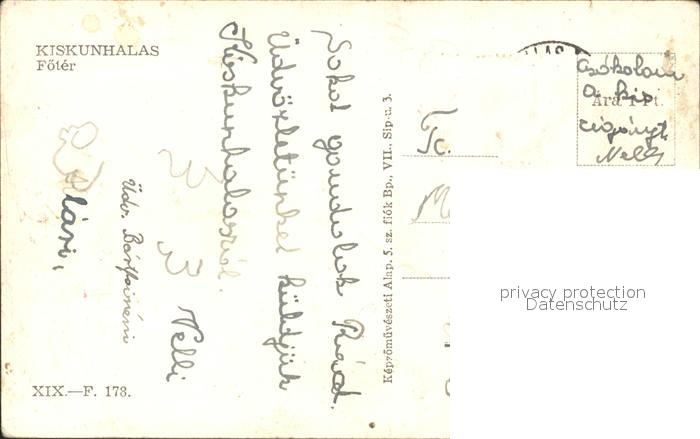 KISKUNHALAS
Főtér
Sokat gondolok Reád.
Üdvözletünket küldjük
Kiskunhalasról.
Nelli
Üdv.
Klári,
XIX.—F. 173.
Képzőművészeti Alap. 5. sz. fiók Bp., VII., Síp-u. 3.
Csókolom
a kis
cigányt
Nelli
Ára 1 Ft.
privacy protection
Datenschutz